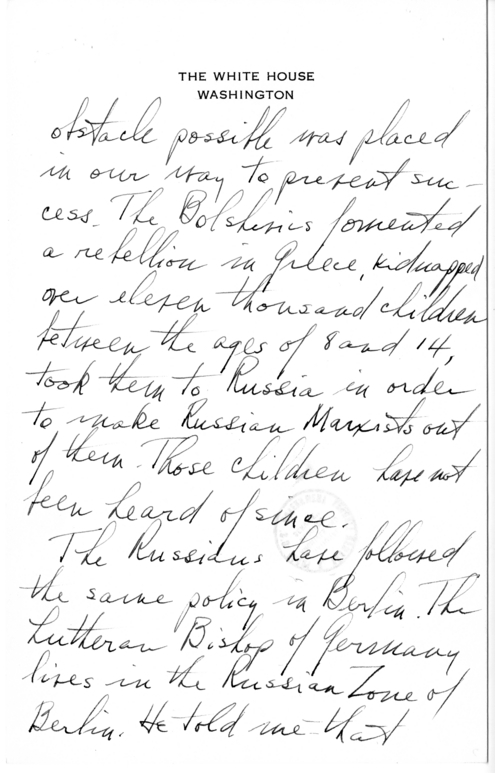 THE WHITE HOUSE
WASHINGTON
obstacle possible was placed
in our way to prevent suc-
cess. The Bolshevics fomented
a rebellion in Greece, kidnapped
over eleven thousand children
between the ages of 8 and 14,
took them to Russia in order
to make Russian Marxists out
of them. Those children have not
been heard of since.
The Russians have followed
the same policy in Berlin. The
Lutheran Bishop of Germany
lives in the Russian Zone of
Berlin. He told me that